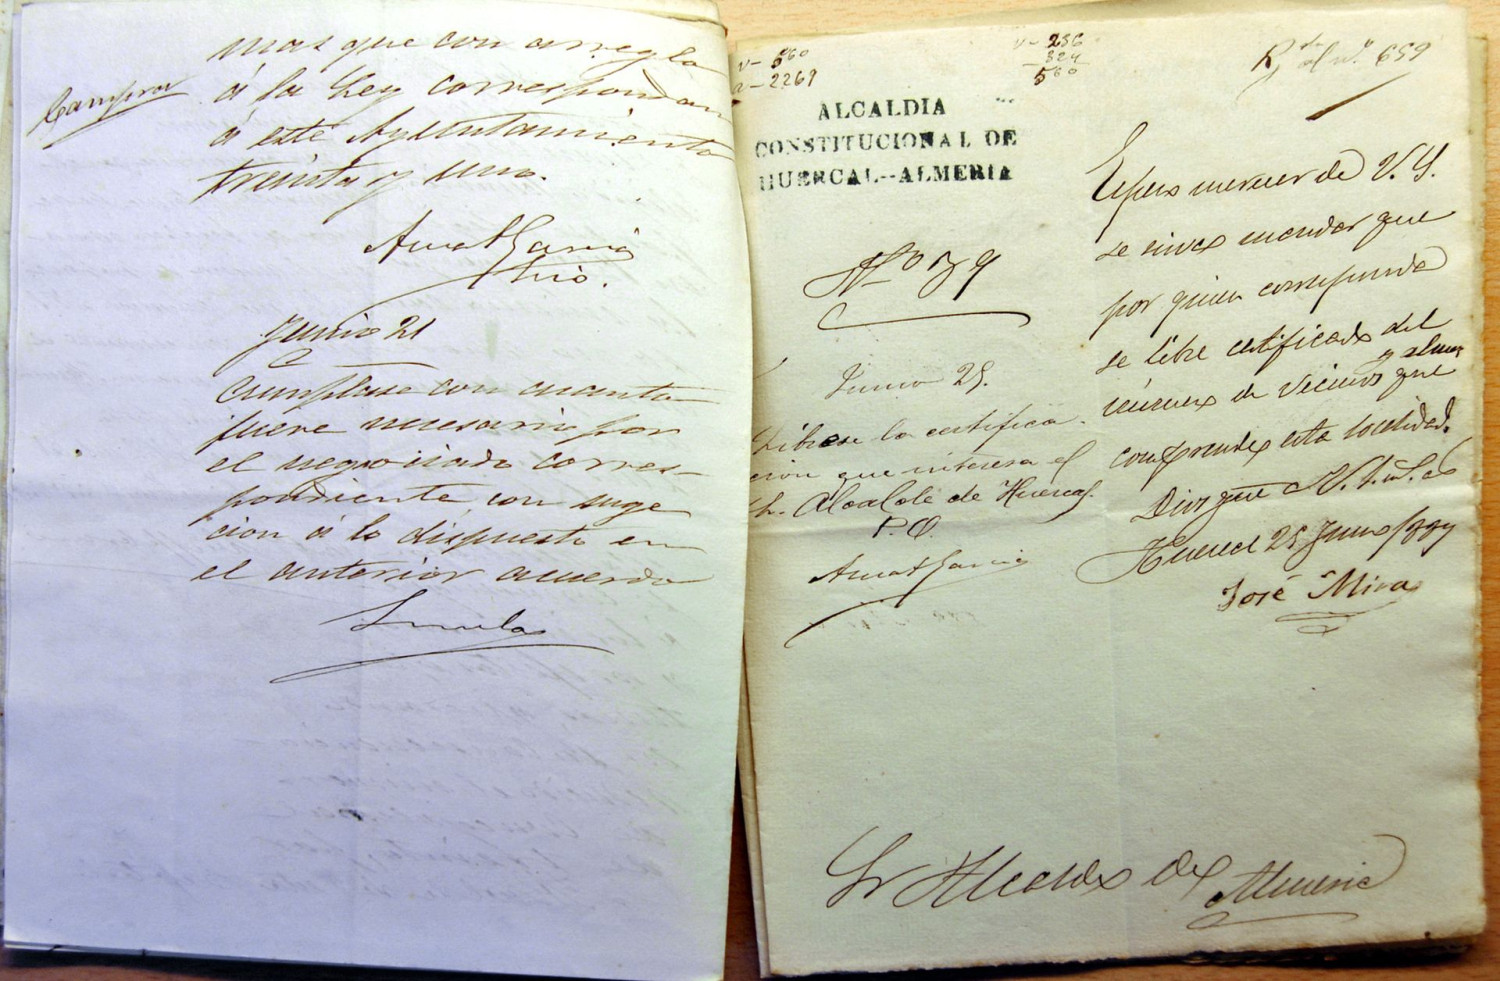 mas que con arreglo
á la Ley correspondan
á este Ayuntamiento
treinta y uno.
Amat Garcia
Srio.
Junio 21
Cumplase con cuanto
fuere necesario por
el negociado corres-
pondiente con suge
cion á lo dispuesto en
el anterior acuerdo
v- 560
a- 2269
v- 236
324
560
Rdo al nº 659
ALCALDIA
CONSTITUCIONAL DE
HUERCAL--ALMERIA
Nº 79
Junio 25.
Librese la certifica-
cion que interesa el
Sr. Alcalde de Huercal.
P.O.
Amat Garcia
Espero merecer de V.S.
se sirva mandar que
por quien corresponda
se libre certificado del
número de vecinos y almas que
comprende esta localidad.
Dios gue á V. S. m. a.
Huercal 25 Junio
José Miras
Sr Alcalde de Almeria